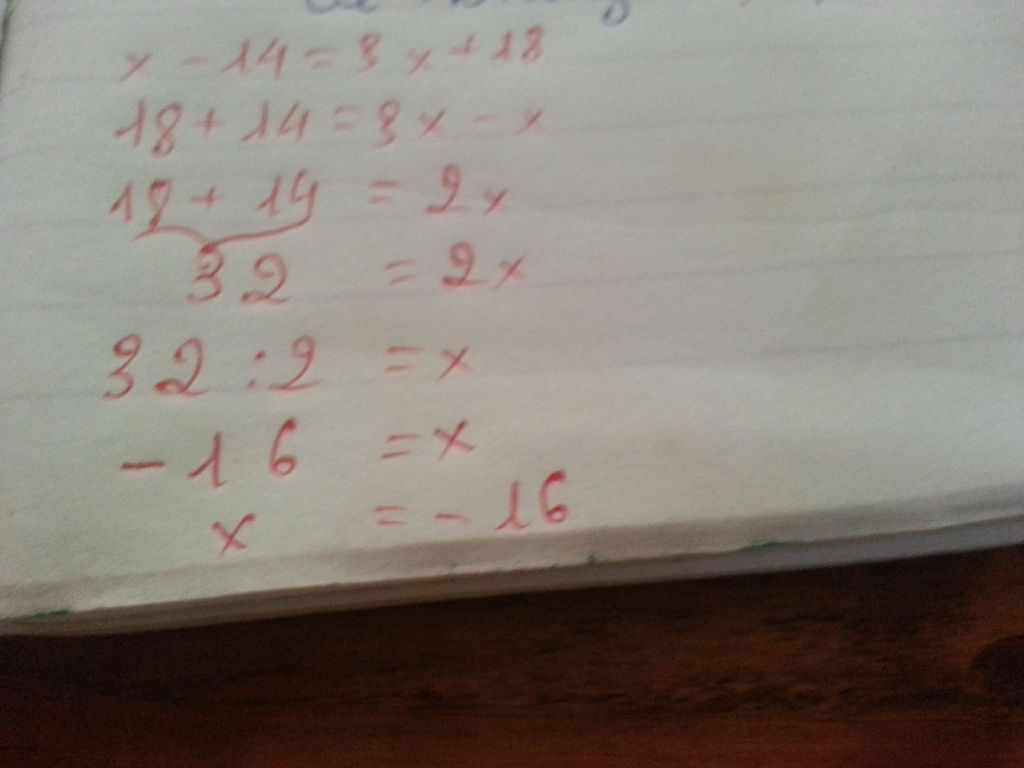 x - 14 = 3x + 18
18 + 14 = 3x - x
18 + 14 = 2x
32 = 2x
32 : 2 = x
- 16 = x
x = - 16